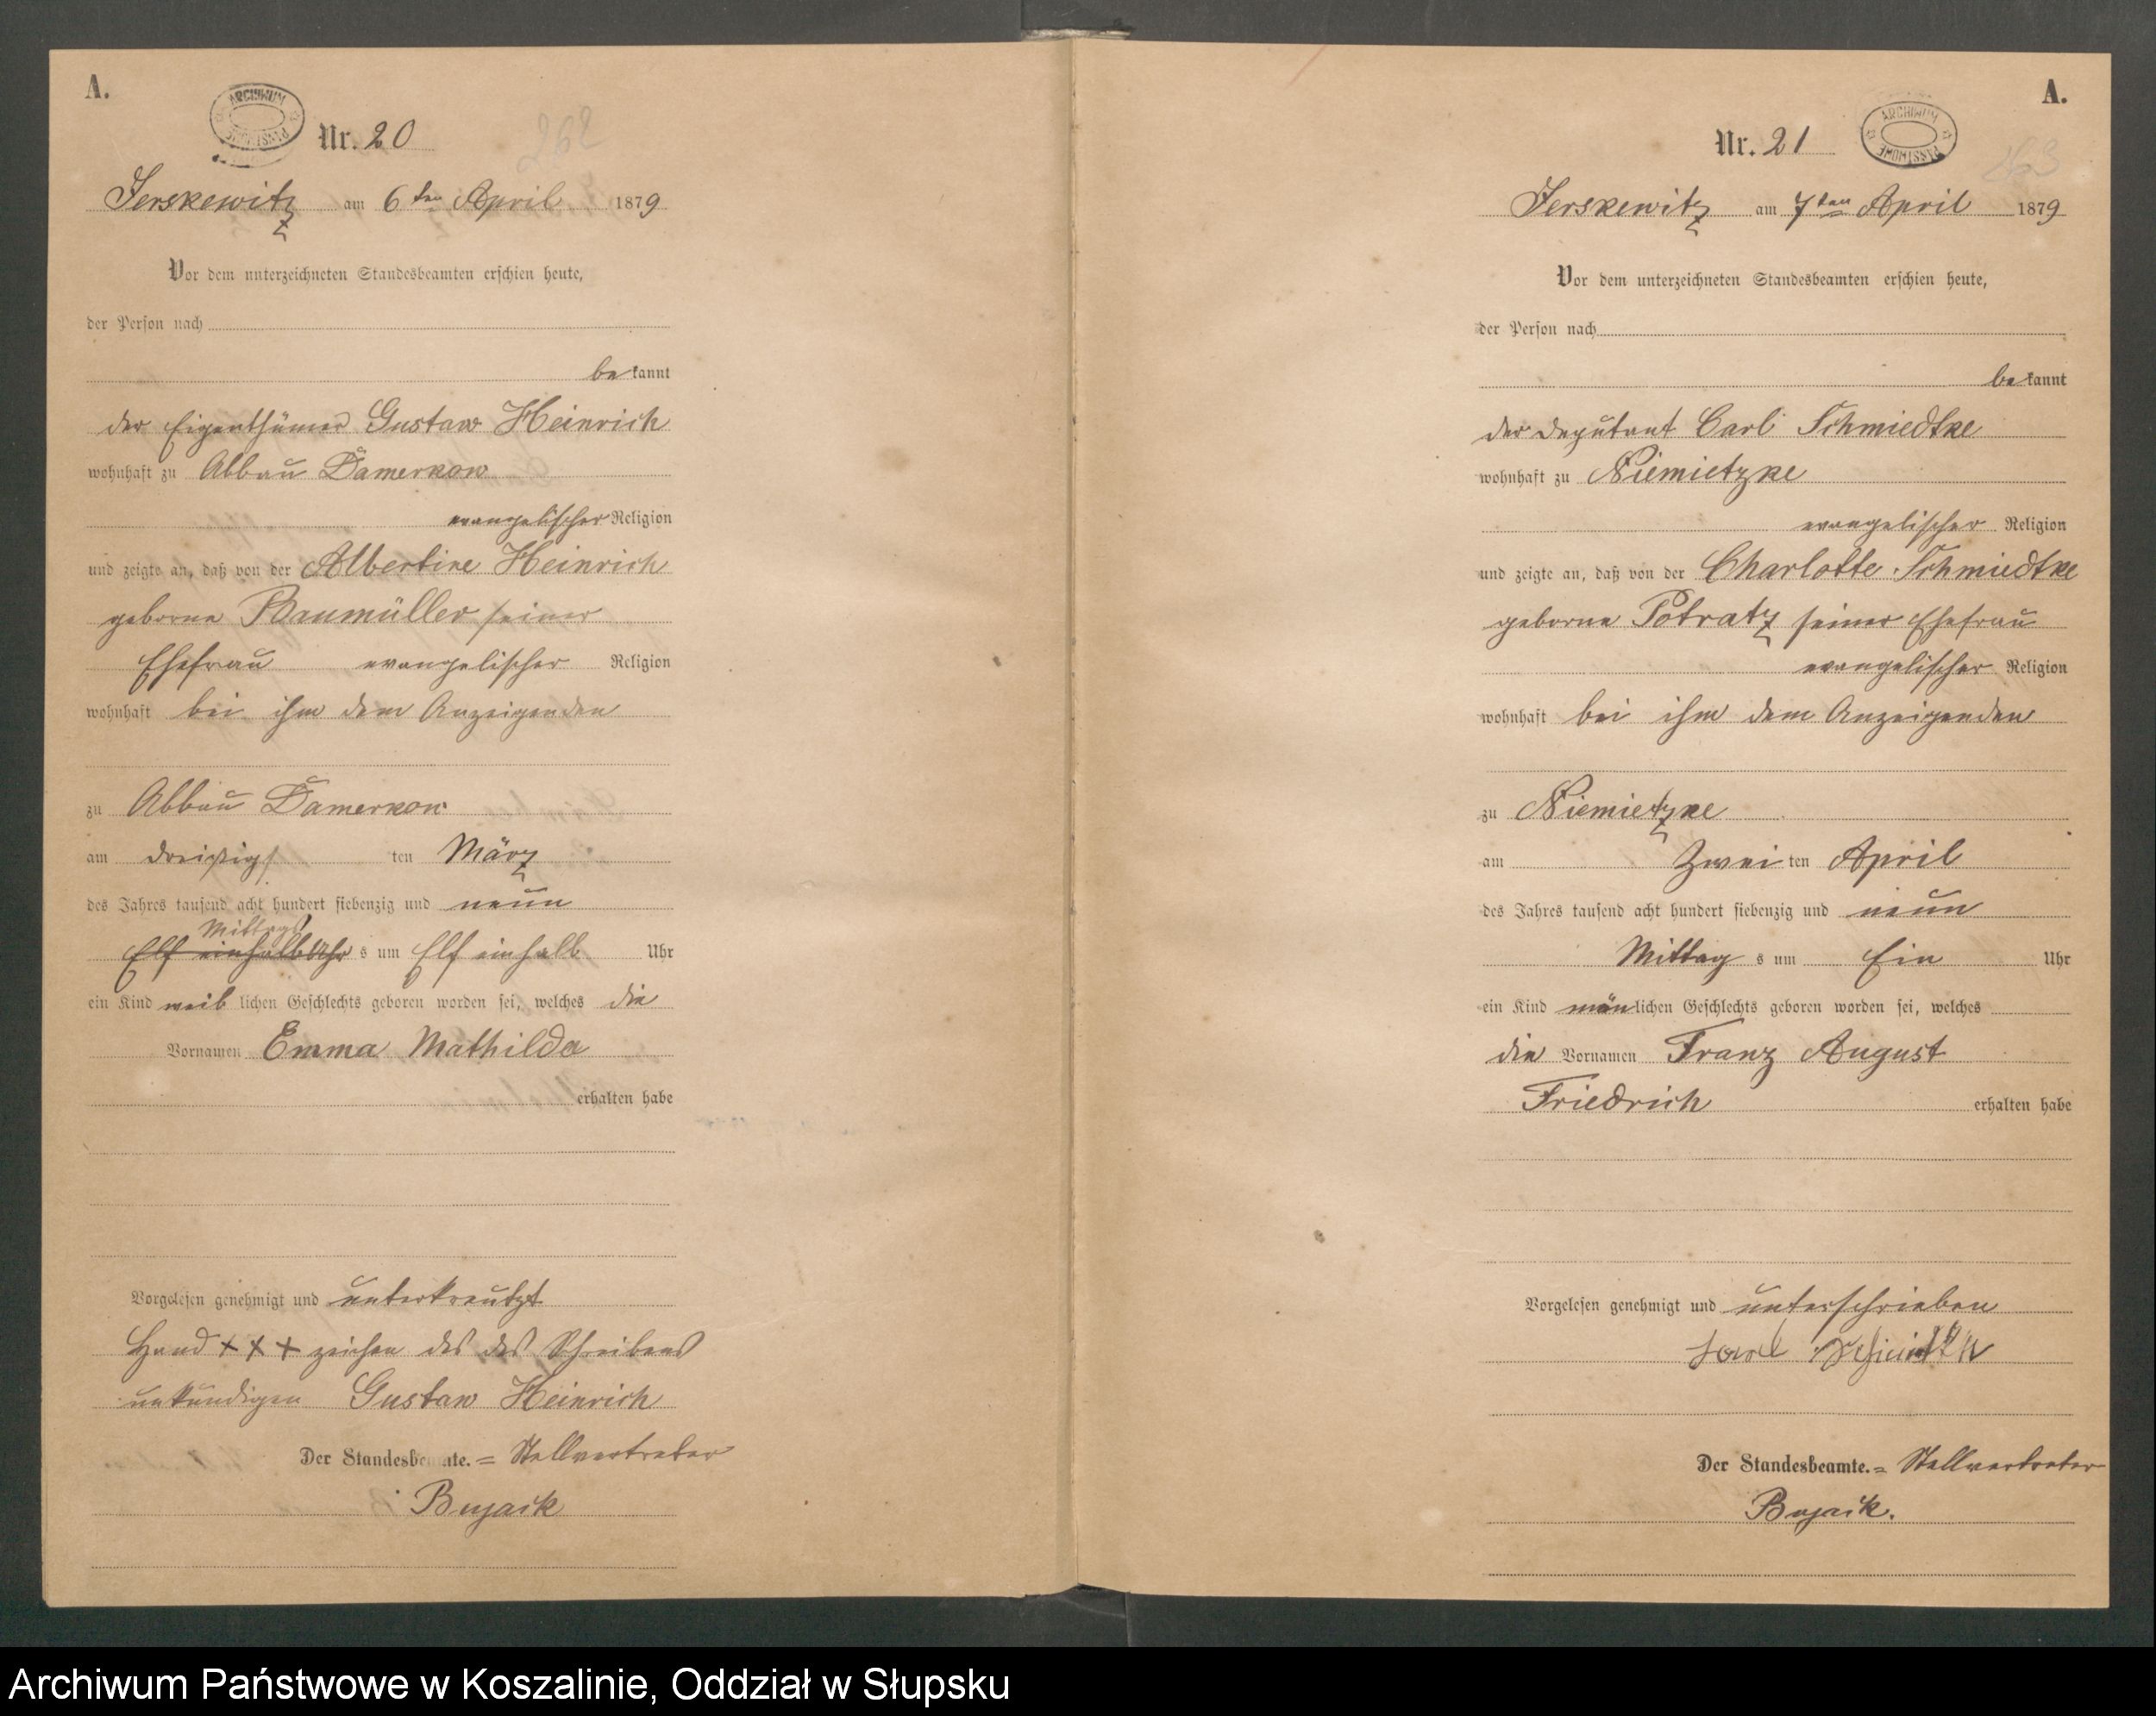 A.
ARCHIWUM PAŃSTWOWE
262
Nr. 20
Jerskewitz am 6ten April 1879
Vor dem unterzeichneten Standesbeamten erschien heute,
der Person nach
bekannt
der Eigenthümer Gustav Heinrich
wohnhaft zu Abbau Damerkow
evangelischer Religion
und zeigte an, daß von der Albertine Heinrich
geborne Baumüller seiner
Ehefrau evangelischer Religion
wohnhaft bei ihm dem Anzeigenden
zu Abbau Damerkow
am dreißigs ten März
des Jahres tausend acht hundert siebenzig und neun
Mittags
Elf einhalb Uhr s um Elf einhalb Uhr
ein Kind weiblichen Geschlechts geboren worden sei, welches die
Vornamen Emma Mathilde
erhalten habe
Vorgelesen genehmigt und unterkreutzt
Hand +++ zeichen des des Schreibens
unkundigen Gustav Heinrich
Der Standesbeamte. = Stellvertreter
Bujack
A.
ARCHIWUM PAŃSTWOWE
263
Nr. 21
Jerskewitz am 7ten April 1879
Vor dem unterzeichneten Standesbeamten erschien heute,
der Person nach
bekannt
der Deputant Carl Schmiedtke
wohnhaft zu Niemietzke
evangelischer Religion
und zeigte an, daß von der Charlotte Schmiedtke
geborne Potratz seiner Ehefrau
evangelischer Religion
wohnhaft bei ihm dem Anzeigenden
zu Niemietzke
am Zwei ten April
des Jahres tausend acht hundert siebenzig und neun
Mittag s um Ein Uhr
ein Kind mänlichen Geschlechts geboren worden sei, welches
die Vornamen Franz August
Friedrich erhalten habe
Vorgelesen genehmigt und unterschrieben
Carl
Der Standesbeamte. = Stellvertreter
Bujack.
Archiwum Państwowe w Koszalinie, Oddział w Słupsku